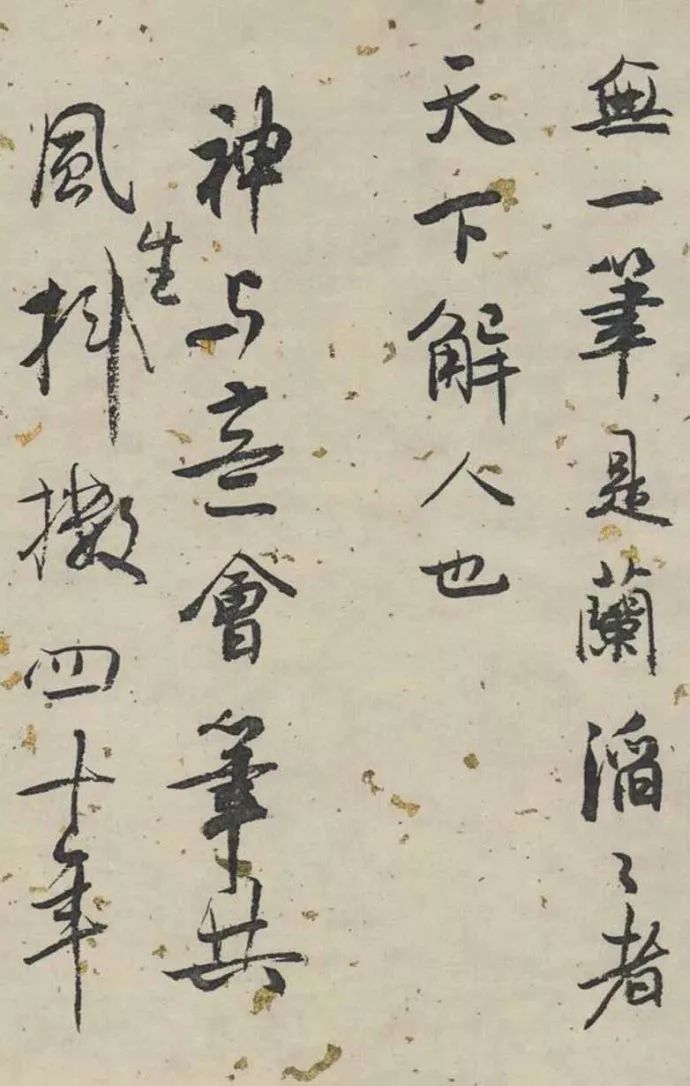 無一筆是蘭滔々者
天下解人也
神与意會筆共
風生抖擻四十年